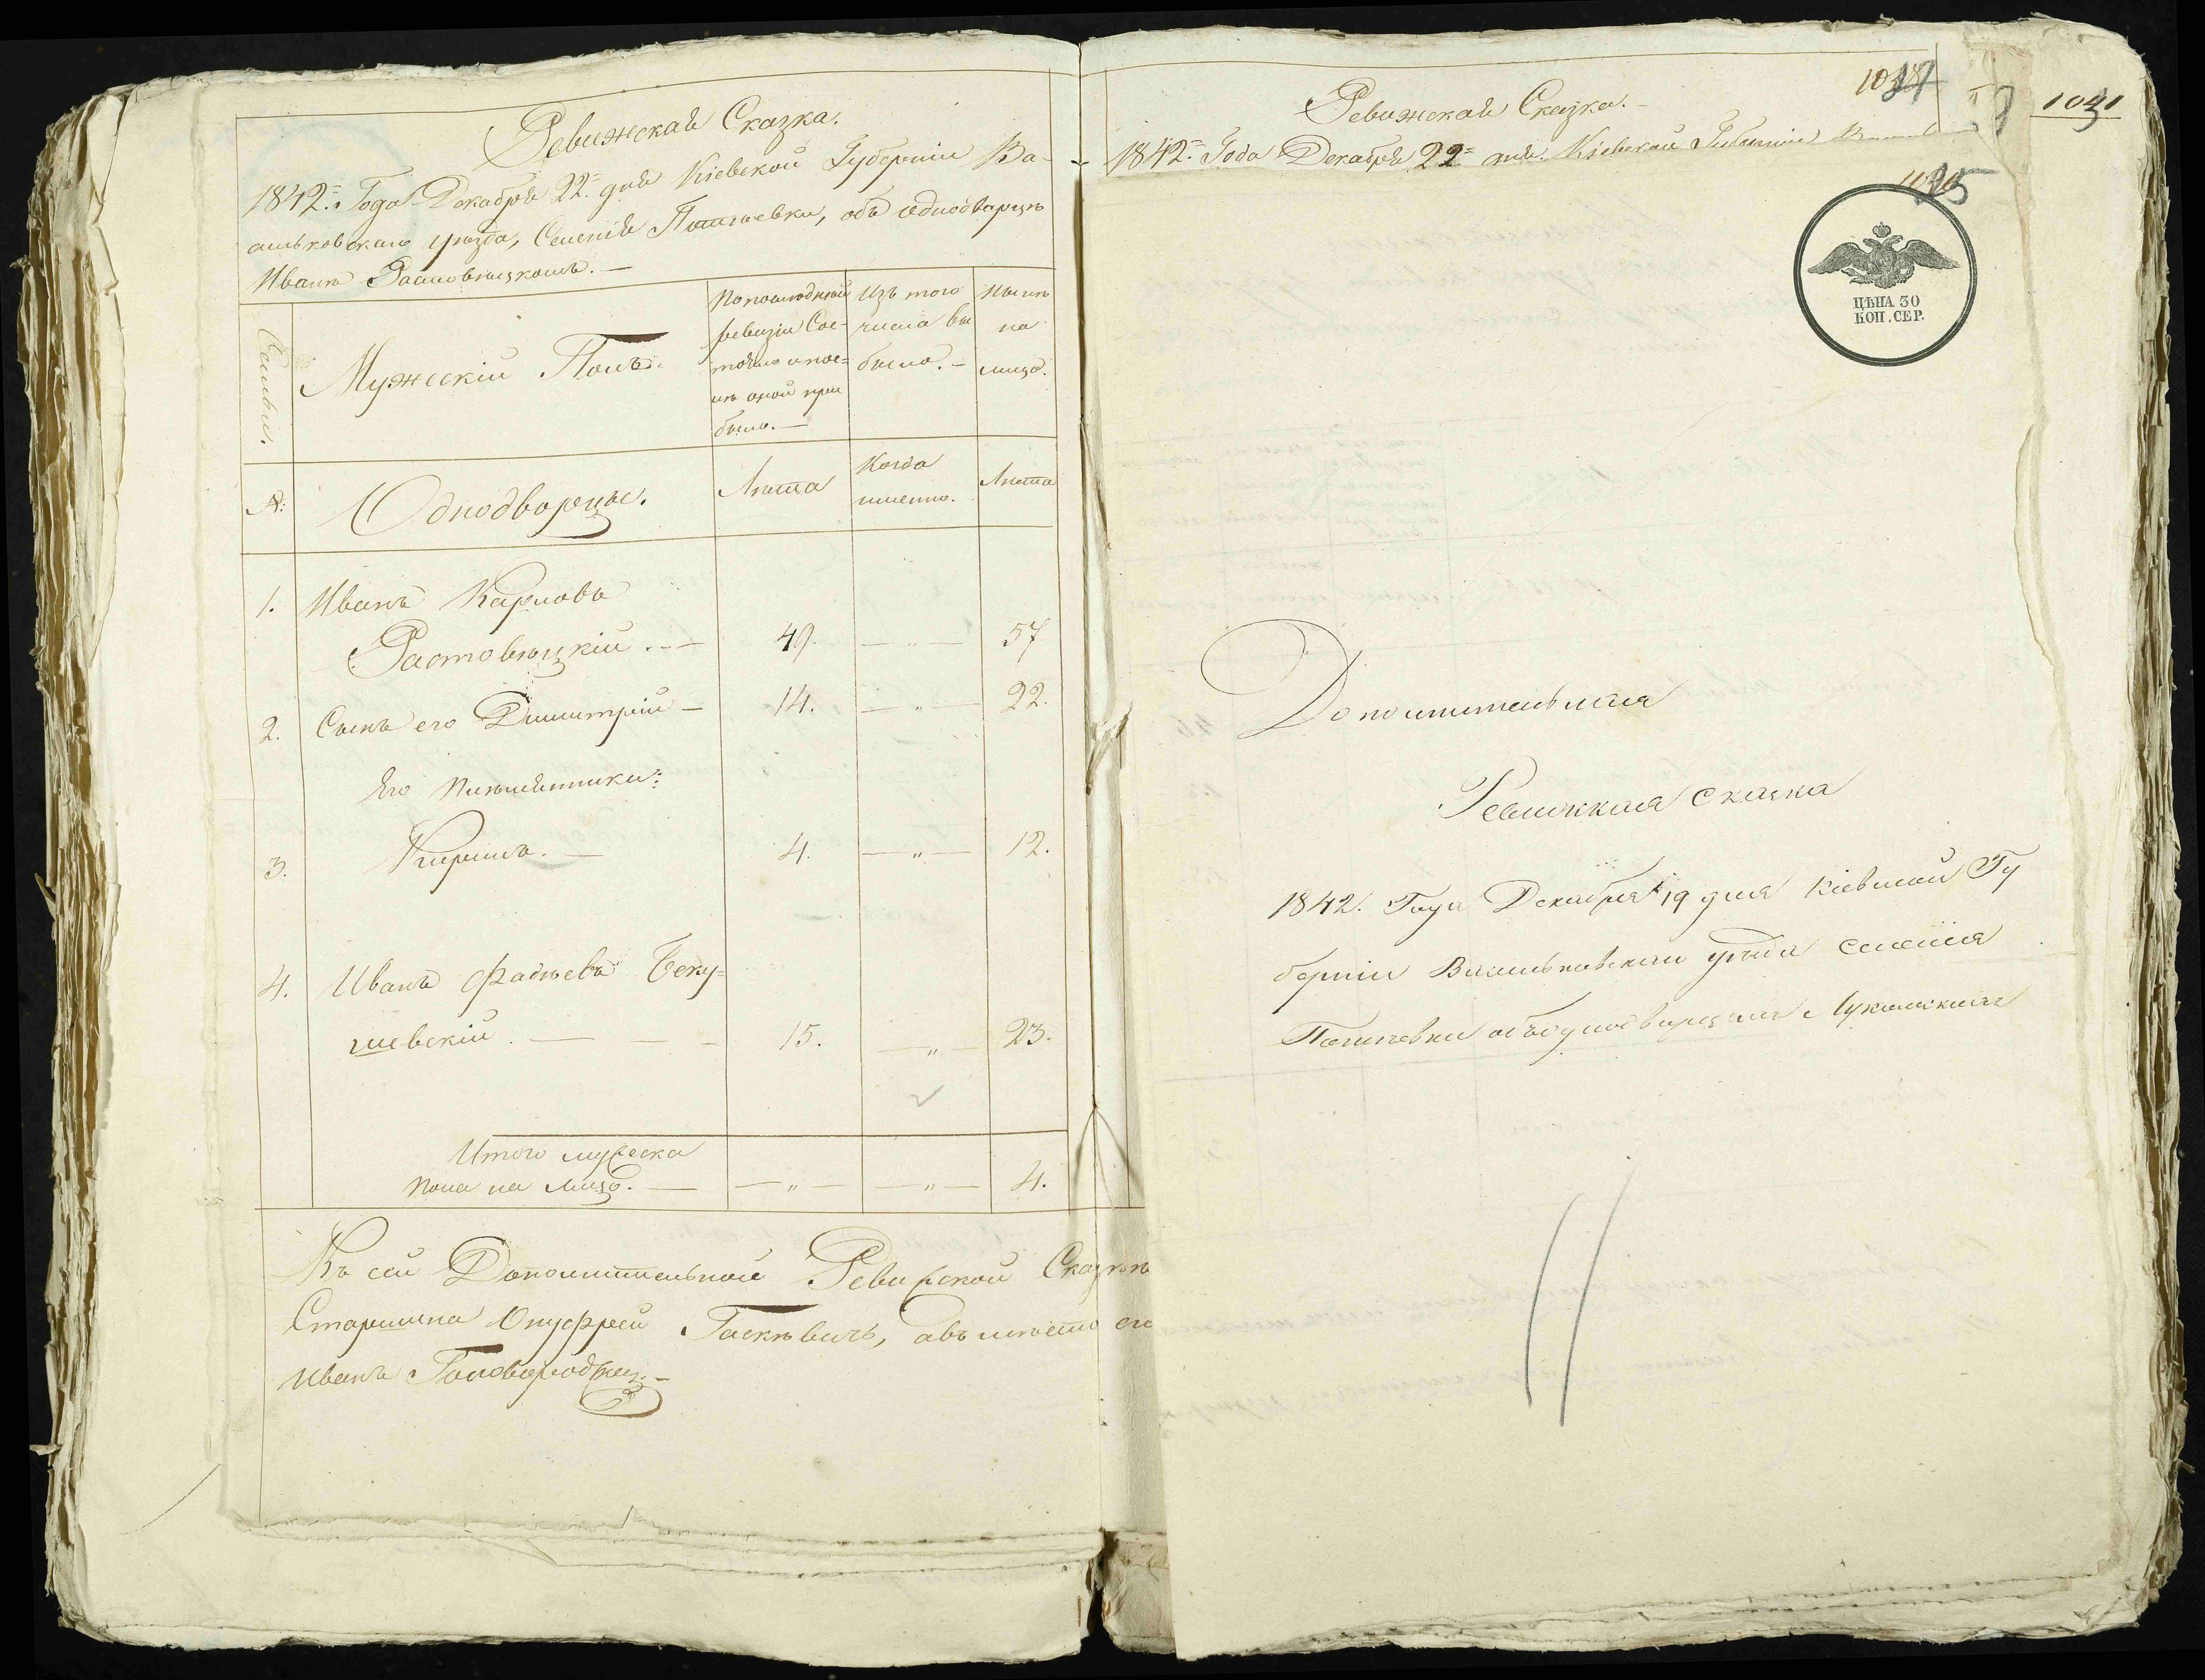 Ревижская Сказка.
1842.= Года Декабря 22.= дня Кіевской Губерніи Ва-
сильковскаго уѣзда, Селенія Пологъ, объ однодворцѣ
Иванѣ Растовѣцкомъ. —
Семьи.
Мужескій Полъ.
По последней
ревизіи Сос-
тояло и пос-
лѣ оной при
было. —
Изъ того
числа вы
было. —
Нынѣ
на
лицо.
№:
Однодворцы.
Лѣта
Когда
именно.
Лѣта
1. Иванъ Карловъ
Растовѣцкій . — 49. — „ — 57.
2. Сынъ его Димитрій — 14. — „ — 22.
Его Племянники:
3. Кирилъ. — 4. — „ — 12.
4. Иванъ Фадѣевъ Беку=
шевскій . — — — 15. — „ — 23.
Итого мужеска
пола на лицо. — — „ — — „ — 4.
Къ сей Дополнительной Ревижской Сказкѣ
Старшина Онуфрей Гаскѣвичъ, а въ мѣсто его
Иванъ
Ревижская Сказка. —
1842.= Года Декабря 22= дня. Кіевской Губерніи
1031
ЦѢНА 30
КОП. СЕР.
Дополнительная
Ревижская сказка
1842. Года Декабря 19 дня Кіевской Гу
берніи Васильковскаго уѣзда селенія
объ однодворцахъ